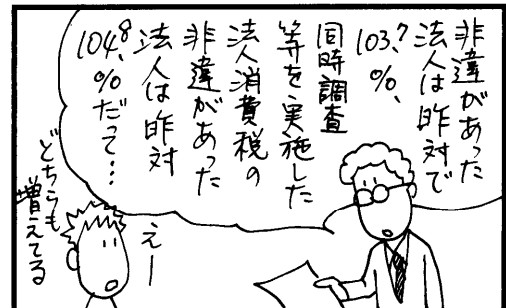 非違があった
法人は昨対で
103.7%、
同時調査
等を実施した
法人消費税の
非違があった
法人は昨対
104.8%だって…
えー
どちらも
増えてる